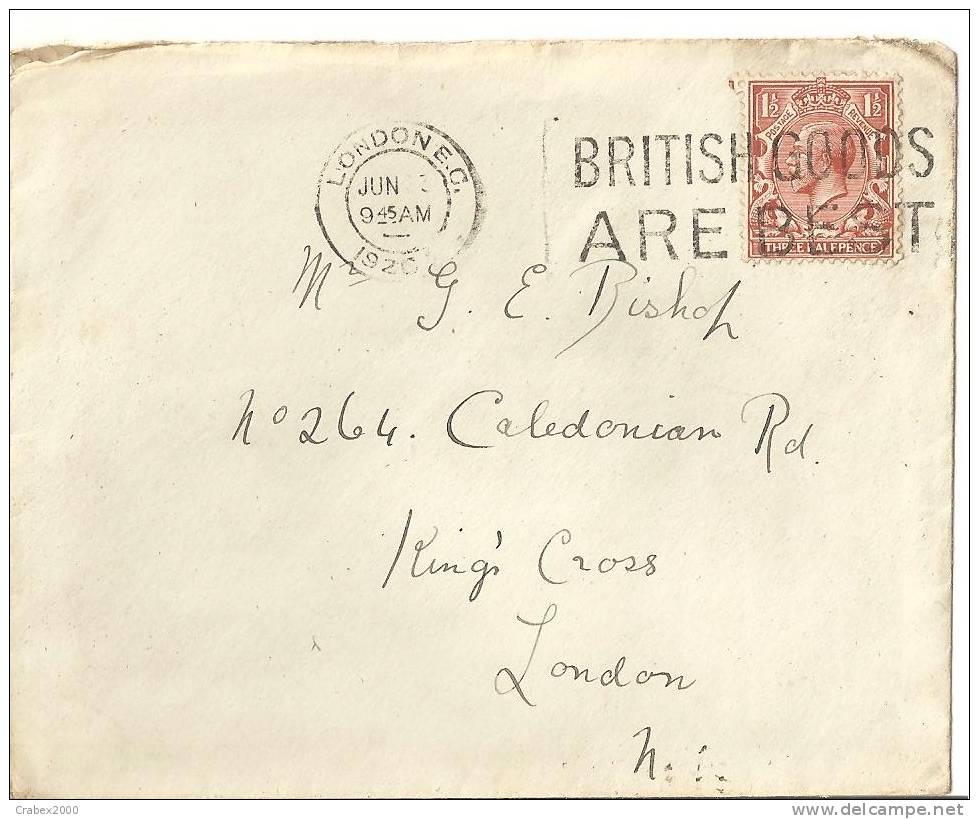 LONDON E.C.
JUN 3
9 45 AM
192
BRITISH GOODS
ARE BEST
1½ 1½
POSTAGE REVENUE
THREE HALFPENCE
Mr G. E. Bishop
No 264. Caledonian Rd.
King's Cross
London
N.
Crabex2000
www.delcampe.net